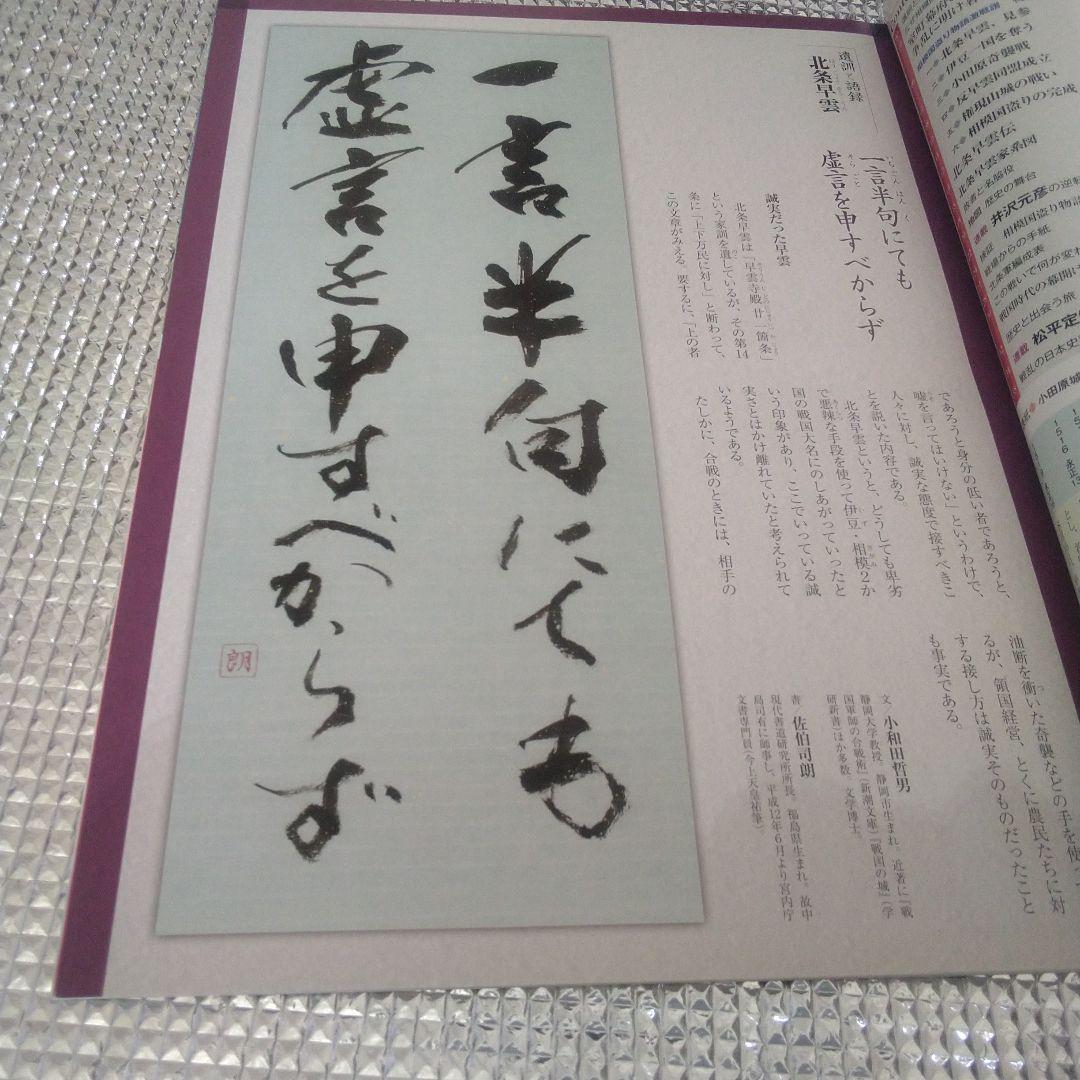 遺訓と語録
北条早雲
一言半句にても
虚言を申すべからず
いちごんはんく
そらごと
誠実だった早雲
北条早雲は「早雲寺殿廿一箇条」
という家訓を遺しているが、その第14
条に「上下万民に対し」と断わって、
この文章がみえる。要するに、「上の者
であろうと身分の低い者であろうと、
嘘を言ってはいけない」というわけで、
人々に対し、誠実な態度で接すべきこ
とを説いた内容である。
北条早雲というと、どうしても卑劣
で悪辣な手段を使って伊豆・相模2か
国の戦国大名にのしあがっていったと
いう印象があり、ここでいっている誠
実さとはかけ離れていたと考えられて
いるようである。
たしかに、合戦のときには、相手の
油断を衝いた奇襲などの手を使って
るが、領国経営、とくに農民たちに対
する接し方は誠実そのものだったこと
も事実である。
文/小和田哲男
静岡大学教授。静岡市生まれ。近著に『戦
国軍師の合戦術』(新潮文庫)『戦国の城』(学
研新書)ほか多数。文学博士。
書/佐伯司朗
現代書道研究所所長。福島県生まれ。故中
島司有に師事し、平成12年6月より宮内庁
文書専門員(今上天皇祐筆)
一言半句にても
虚言を申すべからず
朗
一 北条早雲、見参
二 伊豆一国を奪う
三 小田原奇襲戦
四 反早雲同盟成立
五 権現山城の戦い
六 相模国盗りの完成
北条早雲伝
北条早雲家系図
敵者と名脇役
地図 歴史の舞台
連載 井沢元彦の逆転
検証 相模国盗り物語
戦場からの手紙
北条軍編成表
この戦いで何が変わ
戦国時代の幕開け
歴史と出会う旅
連載 松平定
戦乱の日本史
小田原城
1516 永正13